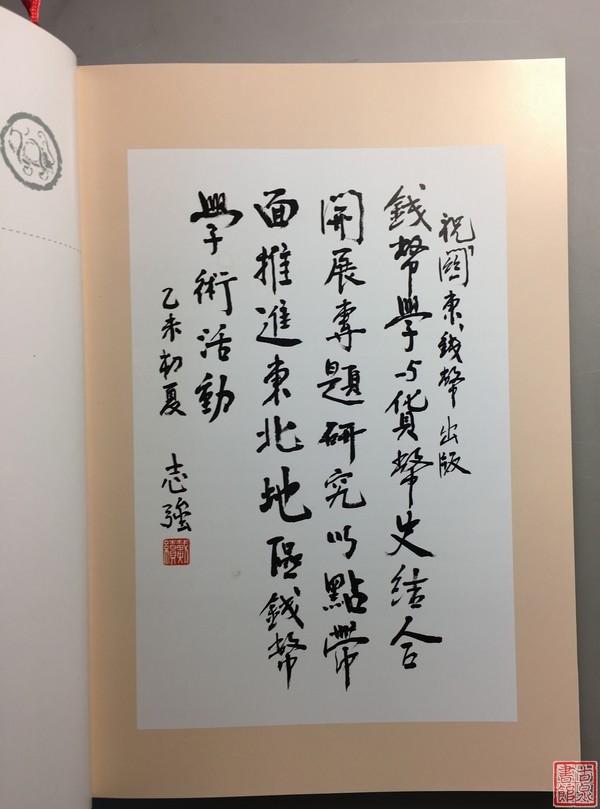 祝“關東錢幣”出版
錢幣學与貨幣史結合
開展專題研究以點帶
面推進東北地區錢幣
學術活動
乙未初夏 志強
尚泉
書館